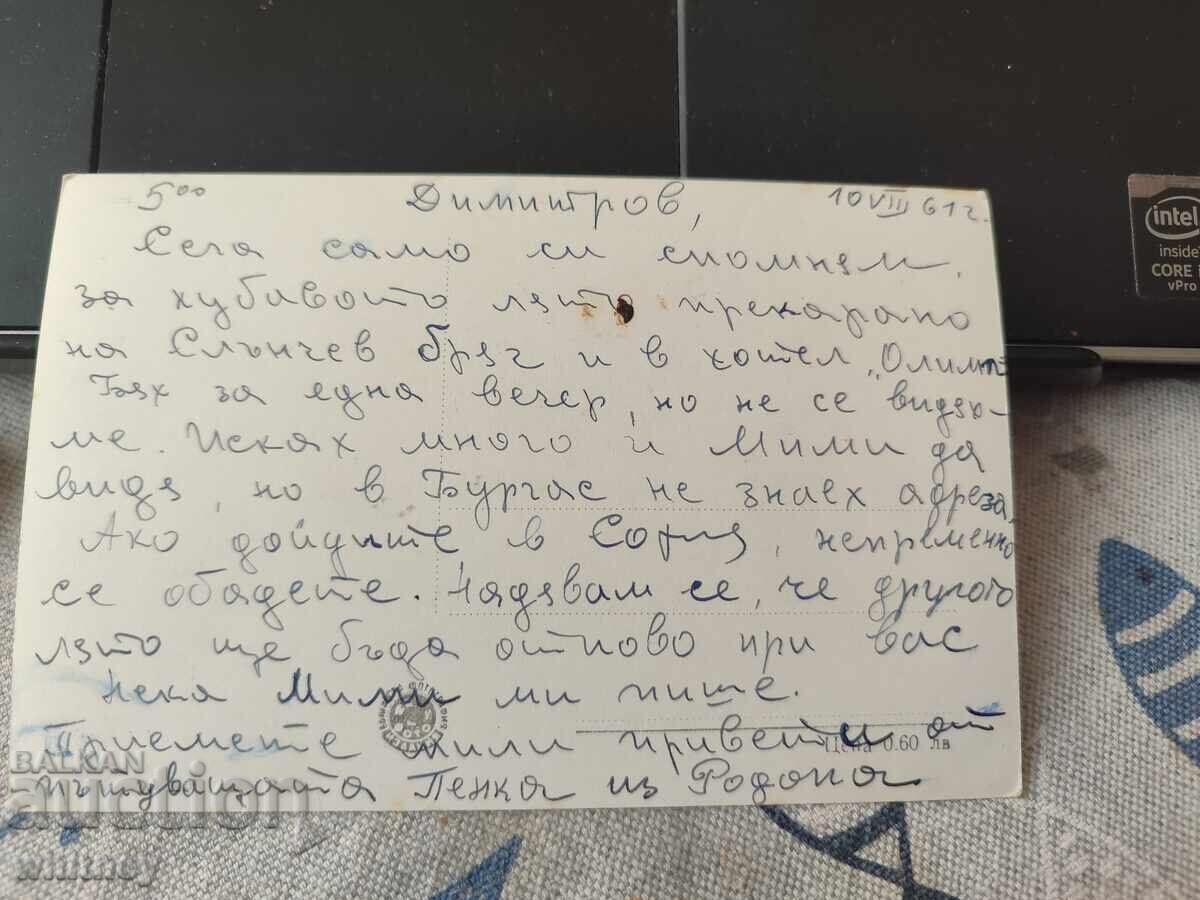 5⁰⁰ Димитров, 10 VIII 61 г.
Сега само си спомням
за хубавото лято прекарано
на Слънчев бряг и в хотел „Олимп"
Бях за една вечер, но не се видях-
ме. Исках много и Мими да
видя, но в Бургас не знаех адреза.
Ако дойдите в София, непременно
се обадете. Надявам се, че другото
лято ще бъда отново при вас
Нека Мими ми пише.
Приемете мили привети от
пътуващата Пенка из Родопа
Цена 0.60 лв
intel
inside
CORE i
vPro
BALKAN
auction
whitney